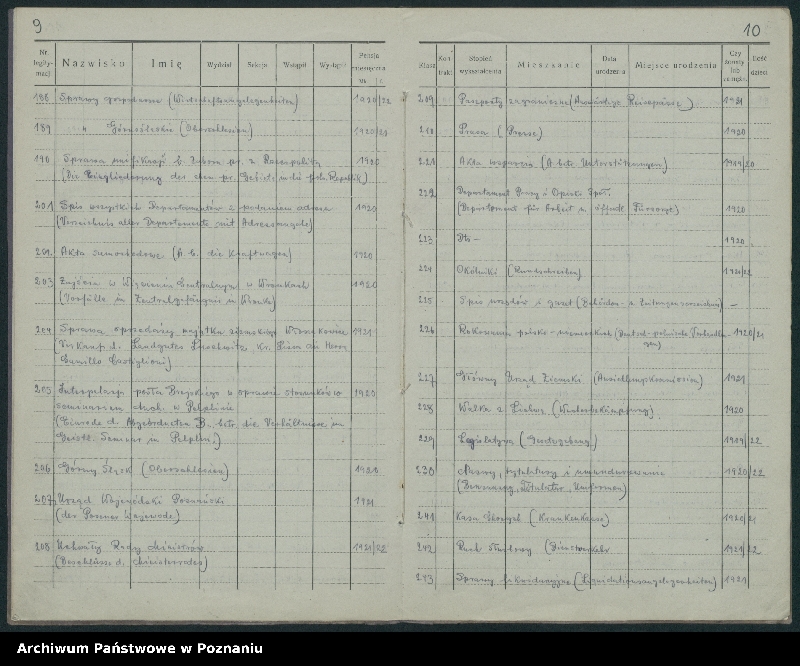 9
Nr. legitymacji Nazwisko Imię Wydział Sekcja Wstąpił Wystąpił Pensja miesięczna Mk
188 Sprawy gospodarcze (Wirtschaftsangelegenheiten) 1920/22
189 " Górnośląskie (Oberschlesien) 1920/21
190 Sprawa unifikacji b. zaboru pr. z Rzecząpolitą 1920
(Die Eingliederung des ehem. pr. Gebiets in die poln. Republik)
201 Spis wszystkich Departamentów z podaniem adresu 1920
(Verzeichnis aller Departements mit Adressenangabe)
202. Akta samochodowe (A. b. die Kraftwagen) 1920
203 Zajścia w Więzieniu Centralnym w Wronkach 1920
(Vorfälle im Zentralgefängnis in Wronke)
204 Sprawa sprzedaży majątku ziemskiego 1921
(Verkauf d. Landgutes Kr. Lissa an Herrn
Camillo Castiglioni)
205 Interpelacja posła w sprawie stosunków w 1920
seminarium duch. w Pelplinie
(Einrede d. Abgeordneten B. betr. die Verhältnisse im
Geistl. Seminar in Pelplin)
206 Górny Śląsk (Oberschlesien) 1920
207 Urząd Wojewódski Poznański 1921
(der Posener Wojewode)
208 Uchwały Rady Ministrów 1921/22
(Beschlüsse d. Ministerrates)
10
Klasa Kontrakt Stopień wykształcenia Mieszkanie Data urodzenia Miejsce urodzenia Czy żonaty lub zamężna Ilość dzieci
209 Paszporty zagraniczne (Auswärtige Reisepässe) 1921
210 Prasa (Presse) 1920
221 Akta wsparcia (A. betr. Unterstützungen) 1919/20
222 Departament Pracy i Opieki Społ.
(Departament für Arbeit u. öffentl. Fürsorge) 1920
223 Dto – 1920
224 Okólniki (Rundschreiben) 1921/22
225 Spis urzędów i gazet (Behörden- u. Zeitungsverzeichnis) –
226 Rokowania polsko-niemieckich (Deutsch-polnische Verhandlun- 1920/21
gen)
227 Główny Urząd Ziemski (Ansiedlungskommission) 1921
228 Walka z Lichwą (Wucherbekämpfung) 1920
229 Legislatywa (Gesetzgebung) 1919/22
230 Nazwy, tytulatury i umundurowanie 1920/22
(Benennung, Titulatur, Uniformen)
241 Kasa Chorych (Krankenkasse) 1920/21
242 Ruch służbowy (Dienstverkehr 1921/22
243 Sprawy likwidacyjne (Liquidationsangelegenheiten) 1921
Archiwum Państwowe w Poznaniu